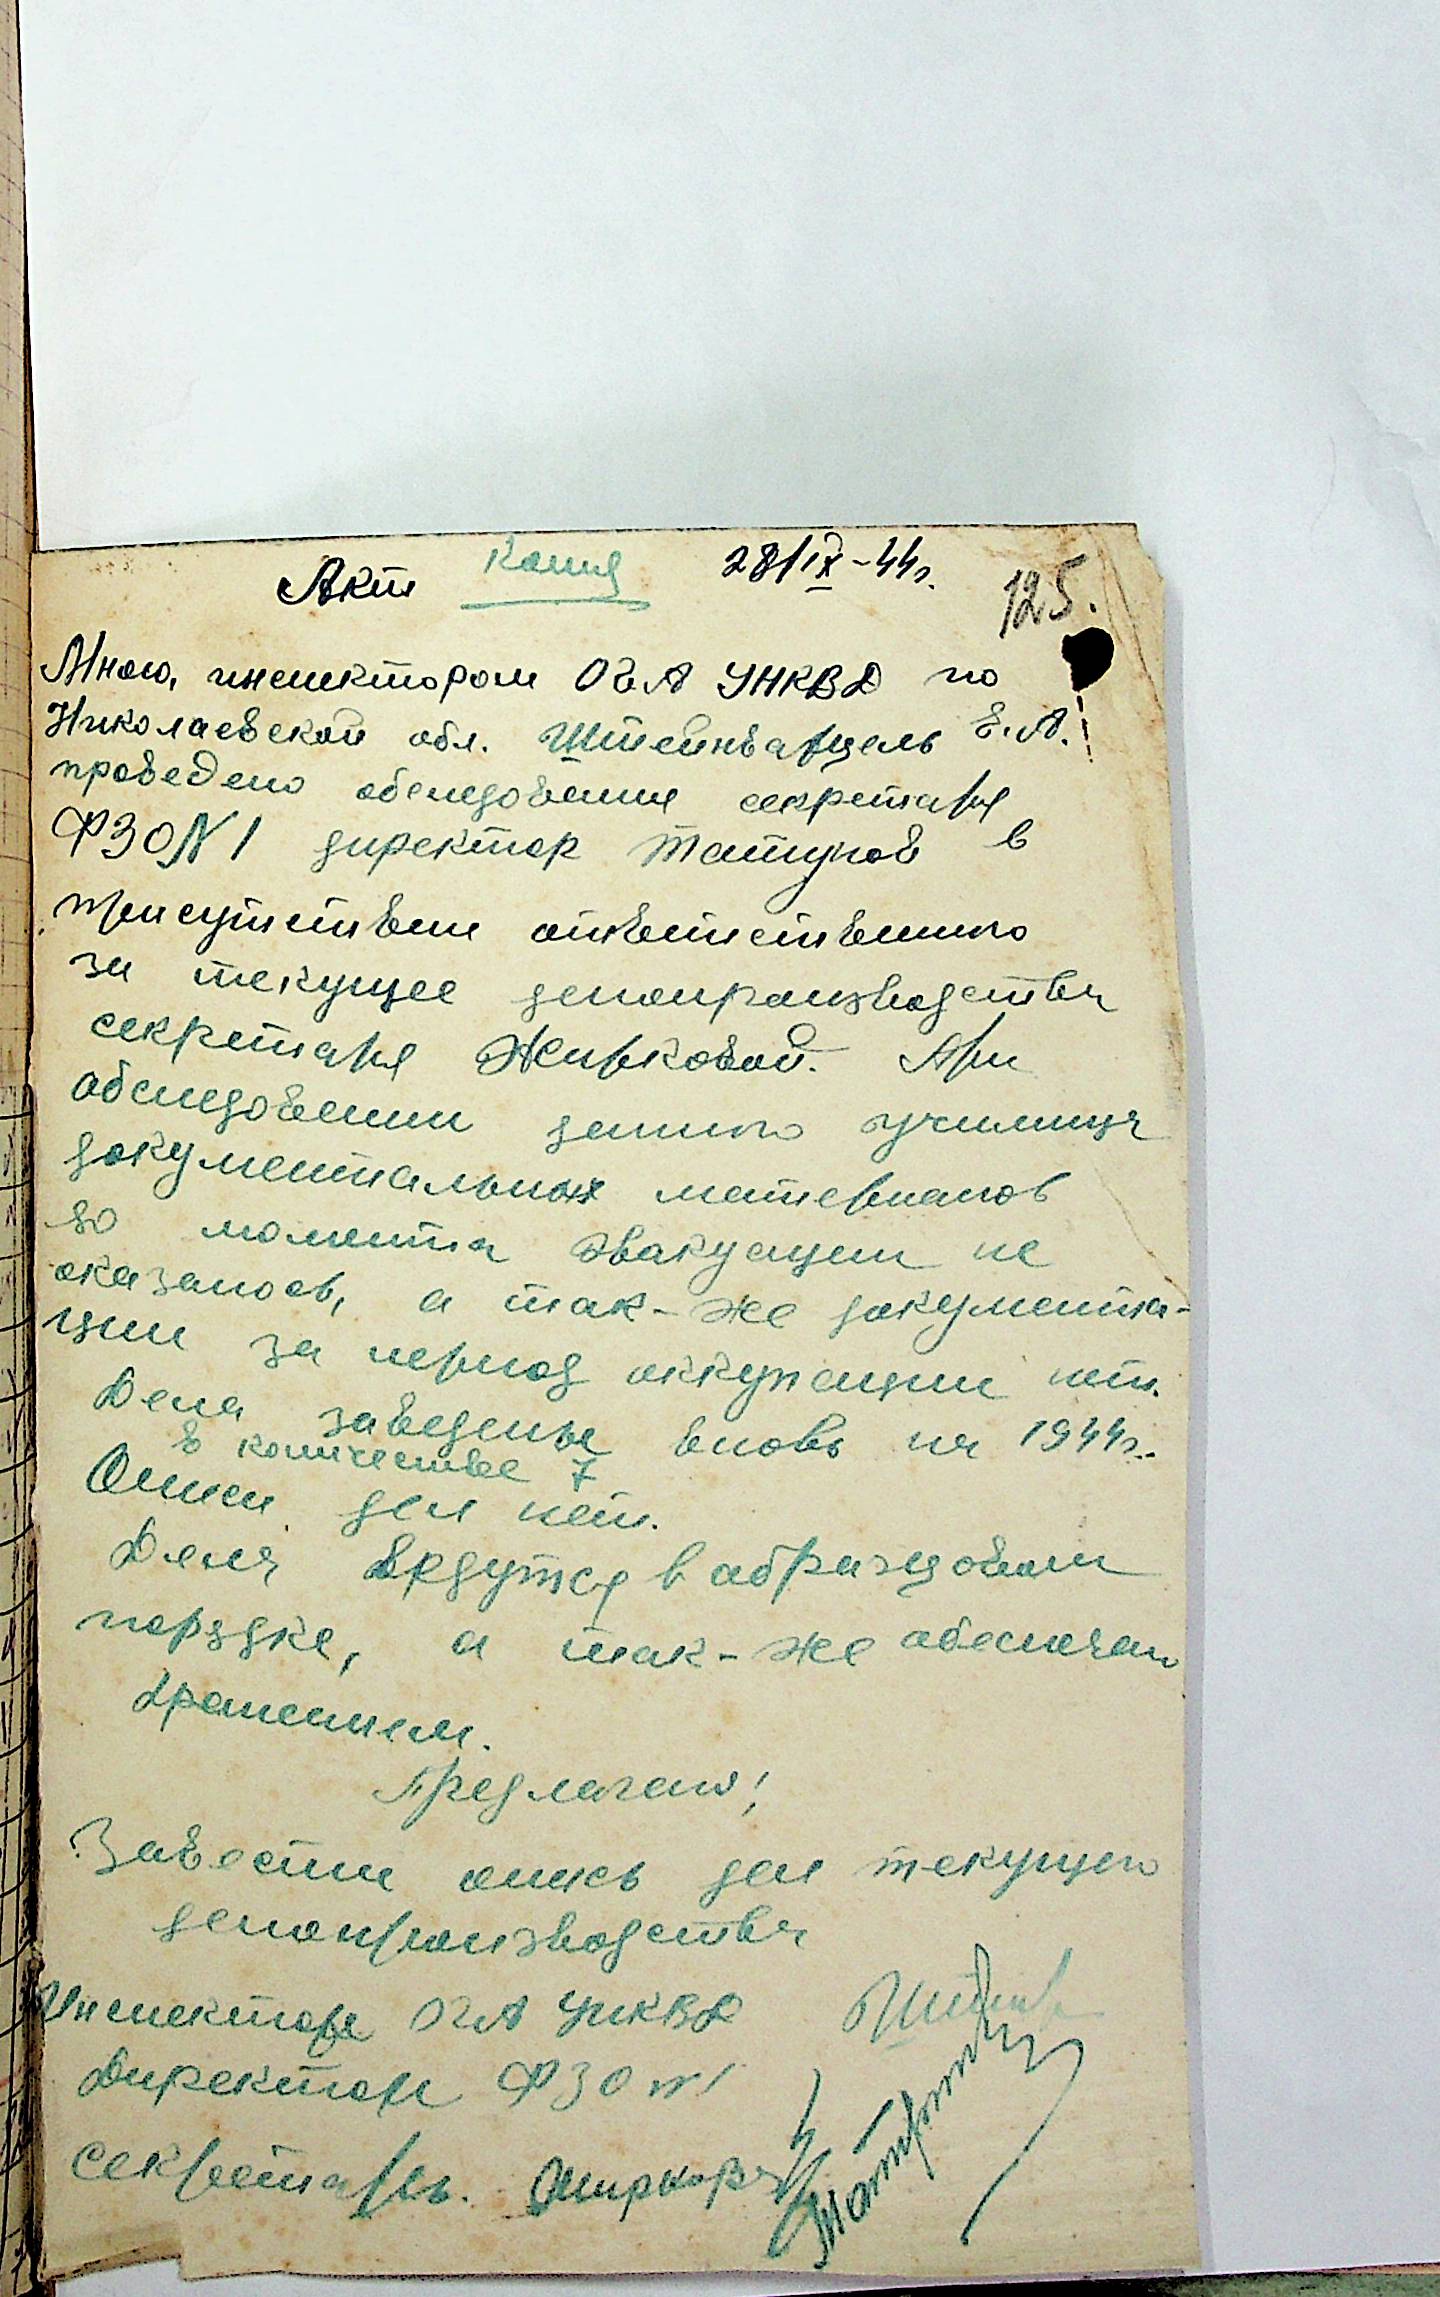 Акт Копия 28/IX-44г.
125.
Мною, инспектором ОГА УНКВД по
Николаевской обл. Штейнварцель Е.А.
проведено обследование секретаря
ФЗО N 1 директор Татунов в
присутствии ответственного
за текущее делопроизводства
секретаря Жирковой. При
обследовании данного училища
документальных материалов
до момента эвакуации не
оказалось, а так-же документа-
ции за период оккупации нет.
Дела заведены вновь на 1944г.
в количестве 7
Описи дел нет.
Дела ведутся в образцовом
порядке, а так-же обеспечен
хранением.
Предлагаю!
Завести опись дел текущего
делопроизводства
Инспектора ОГА УНКВД
Директор ФЗО N 1
Секретарь. Жиркова